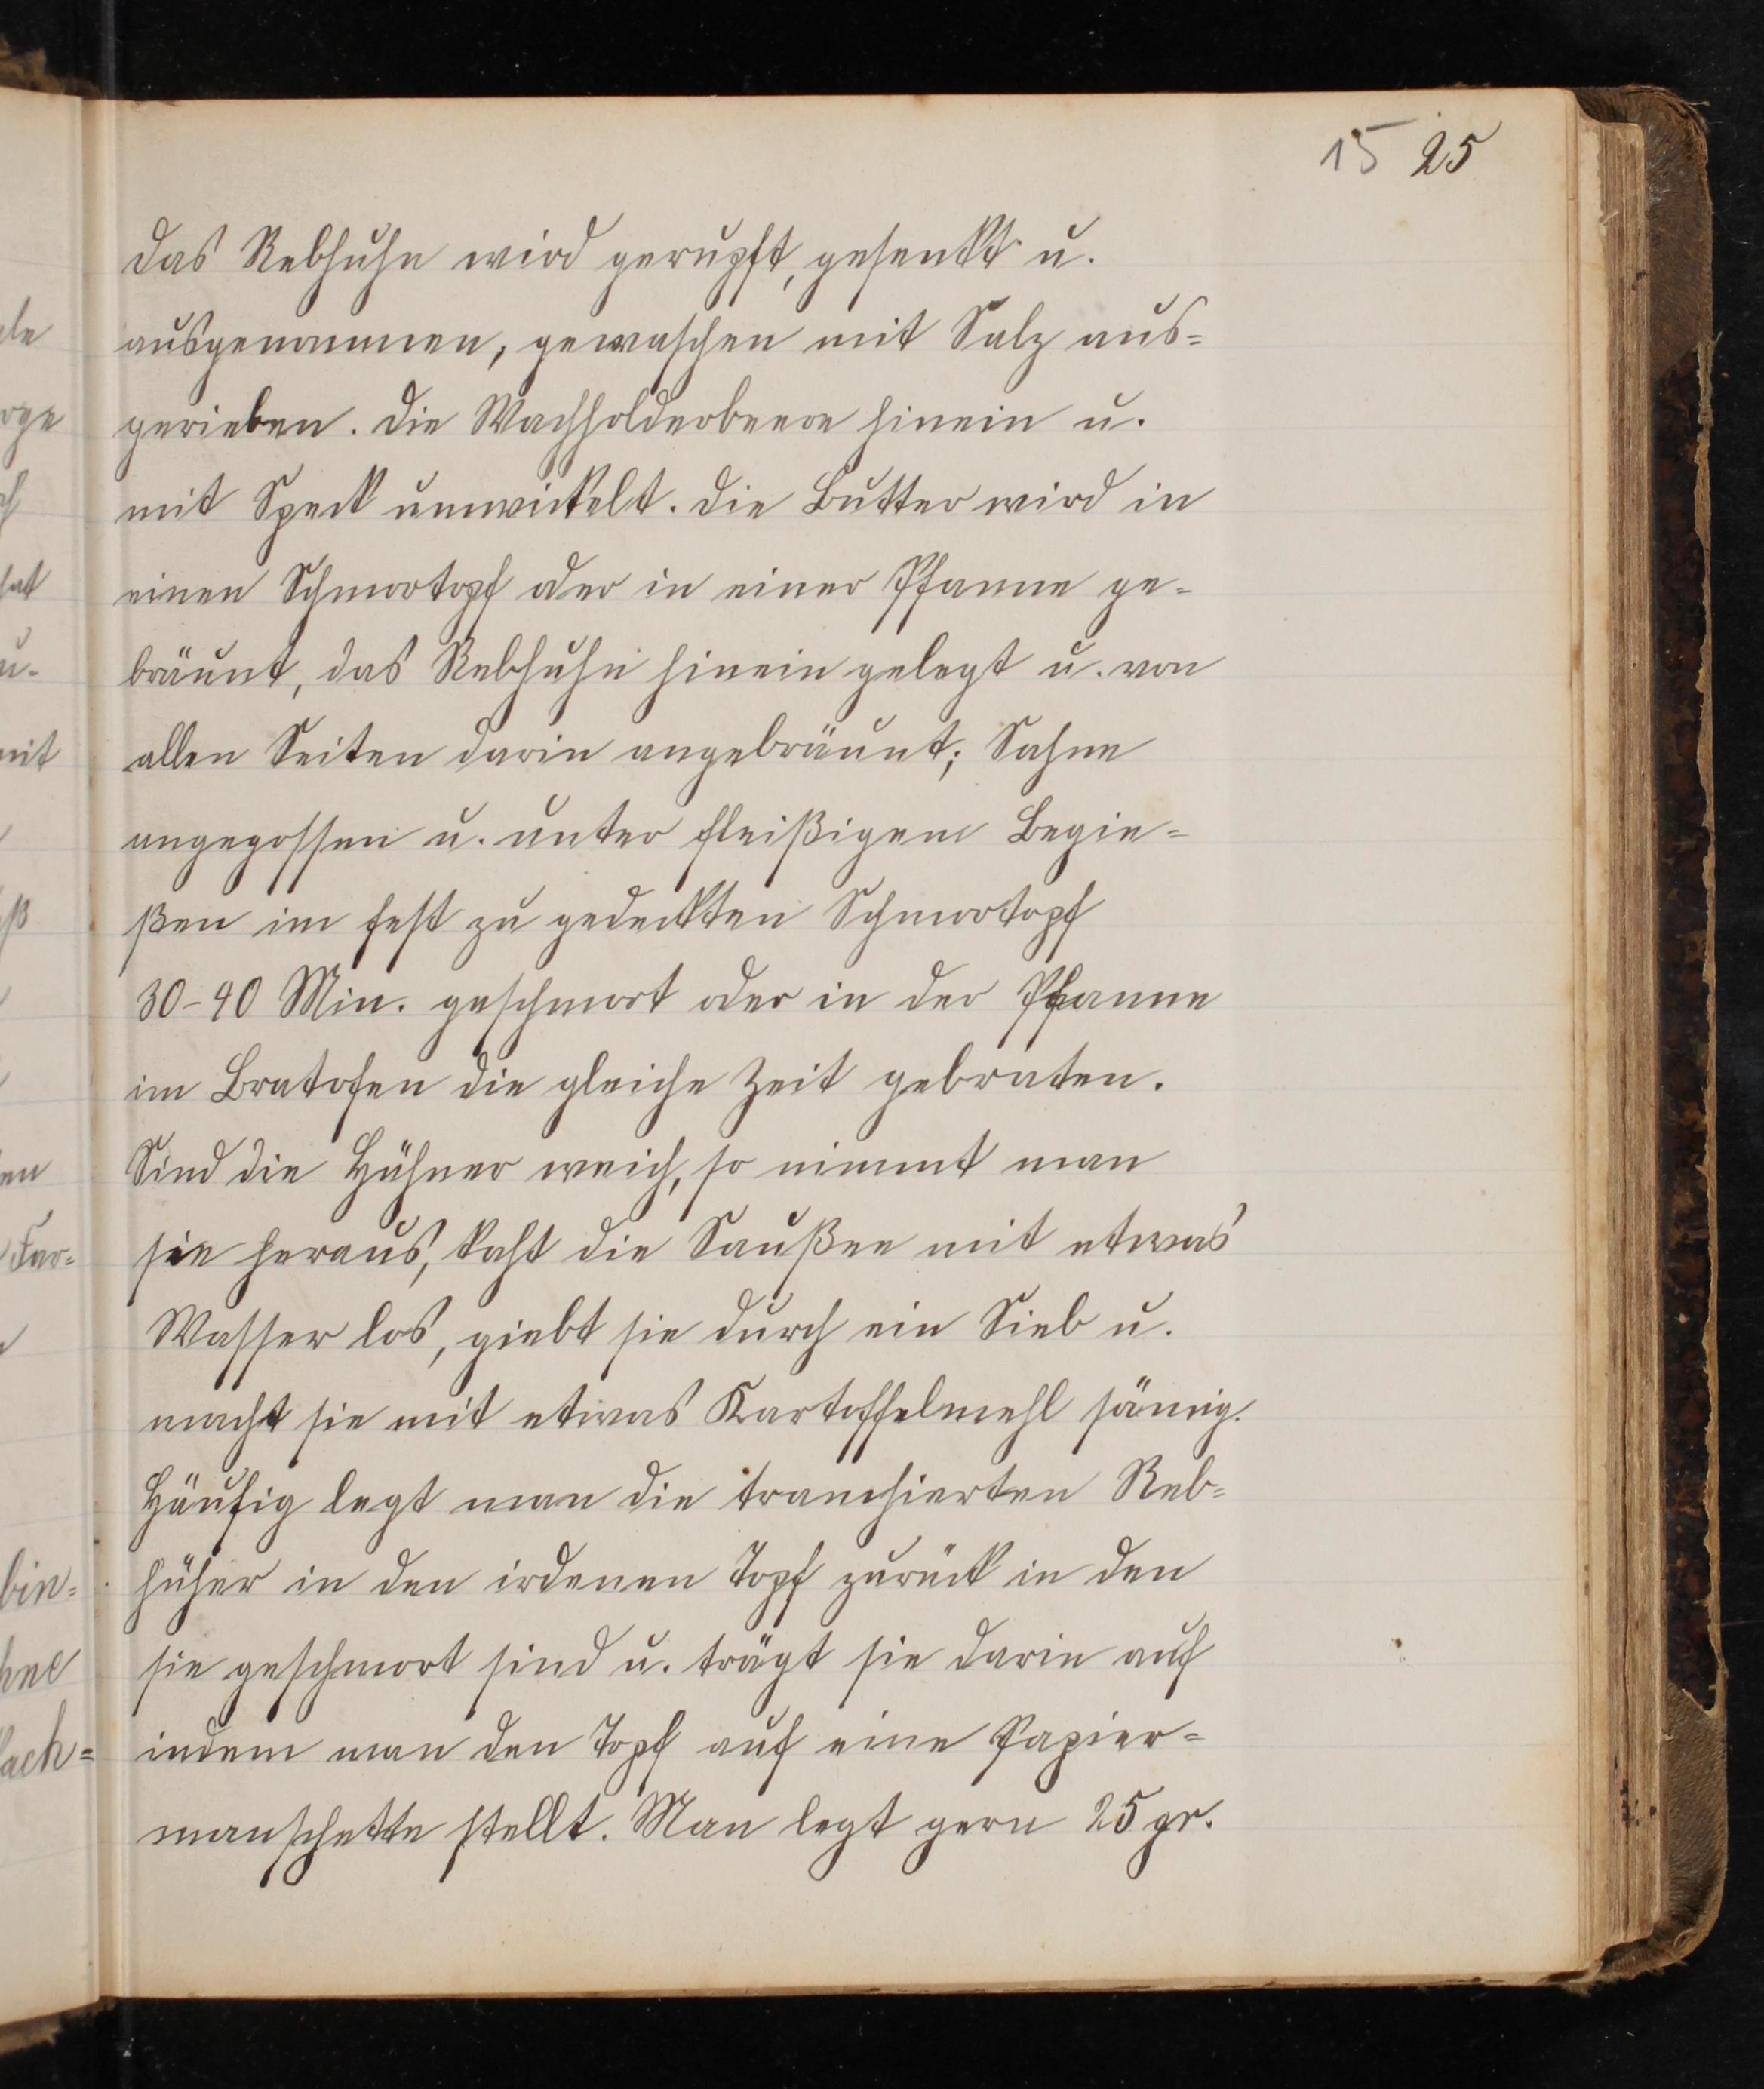 15 25
das Rebhuhn wird gerupft, gesenkt u.
ausgenommen, gewaschen mit Salz aus=
gerieben. die Wachholderbeere hinein u.
mit Speck umwickelt. die Butter wird in
einen Schmortopf oder in einer Pfanne ge=
bräunt, das Rebhuhn hinein gelegt u. von
allen Seiten darin angebräunt; Sahne
angegossen u. unter fleißigem Begie=
ßen im fest zu gedeckten Schmortopf
30-40 Min. geschmort oder in der Pfanne
im Bratofen die gleiche Zeit gebraten.
Sind die Hühner weich, so nimmt man
sie heraus, kocht die Saußee mit etwas
Wasser los, giebt sie durch ein Sieb u.
macht sie mit etwas Kartoffelmehl sämig.
Häufig legt man die tranchierten Reb=
hüher in den irdenen Topf zurück in den
sie geschmort sind u. trägt sie darin auf
indem man den Topf auf eine Papier=
manschette stellt. Man legt gern 25 gr.